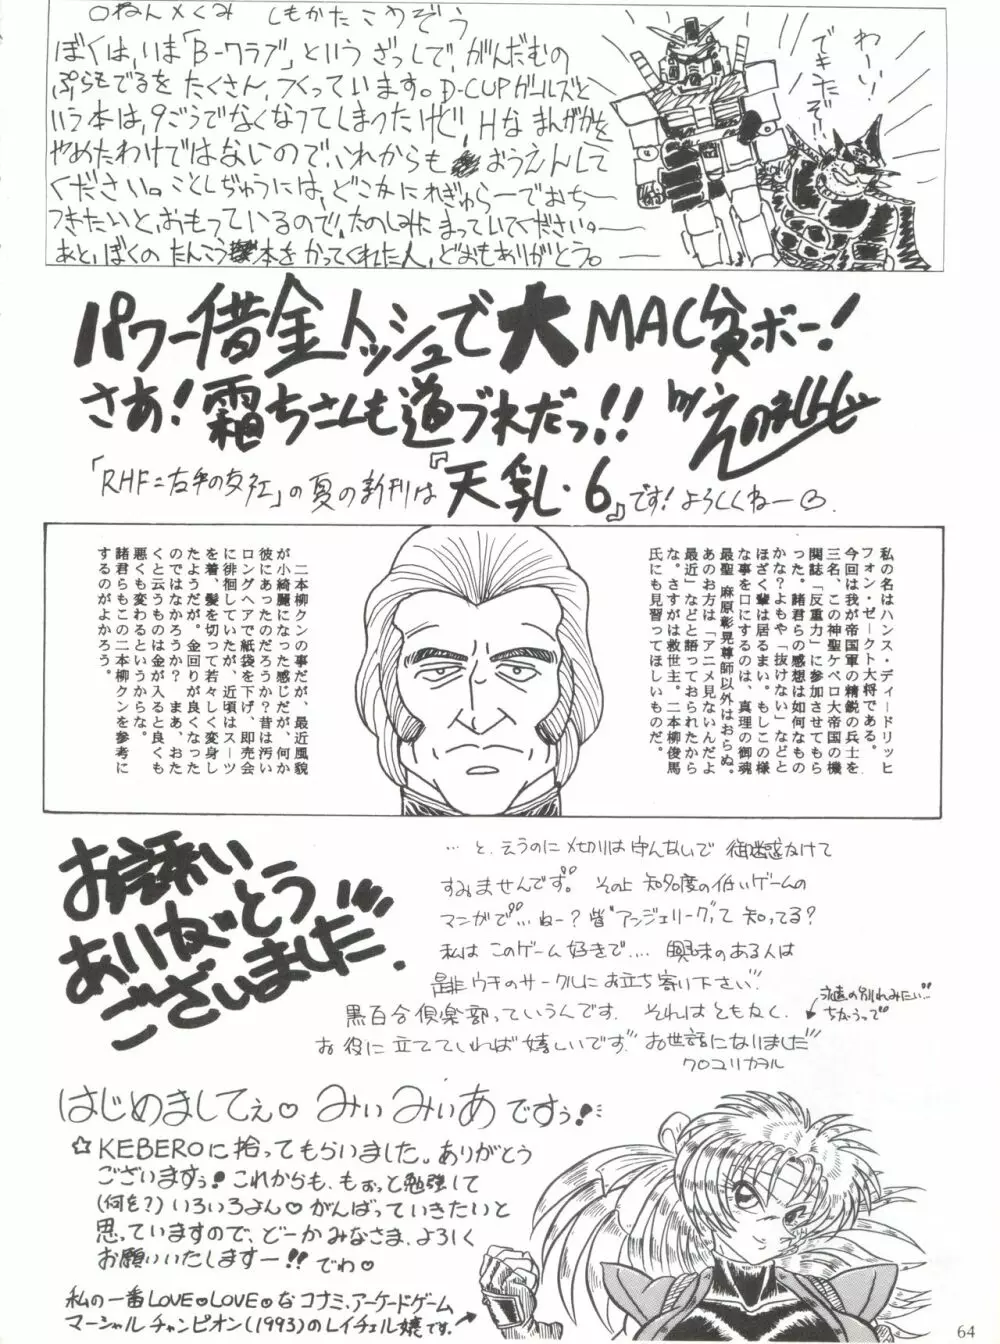 ○ねん×くみ しもかたこうぞう
ぼくは、いま「B-クラブ」というざっしで、がんだむの
ぷらもでるをたくさん、つくっています。D-CUPガールズと
いう本は、9ごうでなくなってしまったけど、Hなまんがかを
やめたわけではないので、これからもおうえんして
ください。ことしぢゅうには、どこかにれぎゅらーでおち
つきたいと、おもっているので、たのしみにまっていてください。
あと、ぼくのたんこう本をかってくれた人、どおもありがとう。
わーい!
できたぞ!!
パワー借金トッシュで大MAC貧ボー!
さあ!霜ちさんも道づれだっ!! by
「RHF=左手の女江」の夏の新刊は『天乳・6』です!よろしくねー
私の名はハンス・ディードリッヒ
フォン・ゼークト大将である。
今回は我が帝国軍の精鋭の兵士を
三名、この神聖ケベロ大帝国の機
関誌「反重力」に参加させてもら
った。諸君らの感想は如何なもの
かな?よもや「抜けない」などと
ほざく輩は居るまい。もしこの様
な事を口にするのは、真理の御魂
最聖 麻原彰晃尊師以外はおらぬ。
あのお方は「アニメ見ないんだよ
最近」などと語っておられたから
な。さすがは救世主。二本柳俊馬
氏にも見習ってほしいものだ。
二本柳クンの事だが、最近風貌
が小綺麗になった感じだが、何か
彼にあったのだろうか?昔は汚い
ロングヘアで紙袋を下げ、即売会
に徘徊していたが、近頃はスーツ
を着、髪を切って若々しく変身し
たようだが。金回りが良くなった
のではなかろうか?まあ、おた
くと云うものは金が入ると良くも
悪くも変わるというからな。
諸君らもこの二本柳クンを参考に
するのがよかろう。
お誘い
ありがとう
ございました。
…と、えうのに〆切りは守んないで 御迷惑かけて
すみませんです。 その上 知名度の低いゲームの
マンガで…ねー?皆"アンジェリーク"って 知ってる?
私は このゲーム好きで…. 興味のある人は
是非ウチのサークルにお立ち寄り下さい
黒百合倶楽部っていうんです. それはともかく.
お役に立てていれば嬉しいです お世話になりました
永遠の別れみたい…
ちがうって
クロユリカヲル
はじめましてぇ♡ みぃみぃあですぅ!
☆KEBEROに拾ってもらいました。ありがとう
ございますぅ!これからも、もぉっと勉強して
(何を?)いろいろよん♡がんばっていきたいと
思っていますので、どーかみなさま、よろしく
お願いいたしますー!! でわ♡
私の一番LOVE♡LOVE♡なコナミ、アーケードゲーム
マーシャルチャンピオン(1993)のレイチェル嬢です。
64